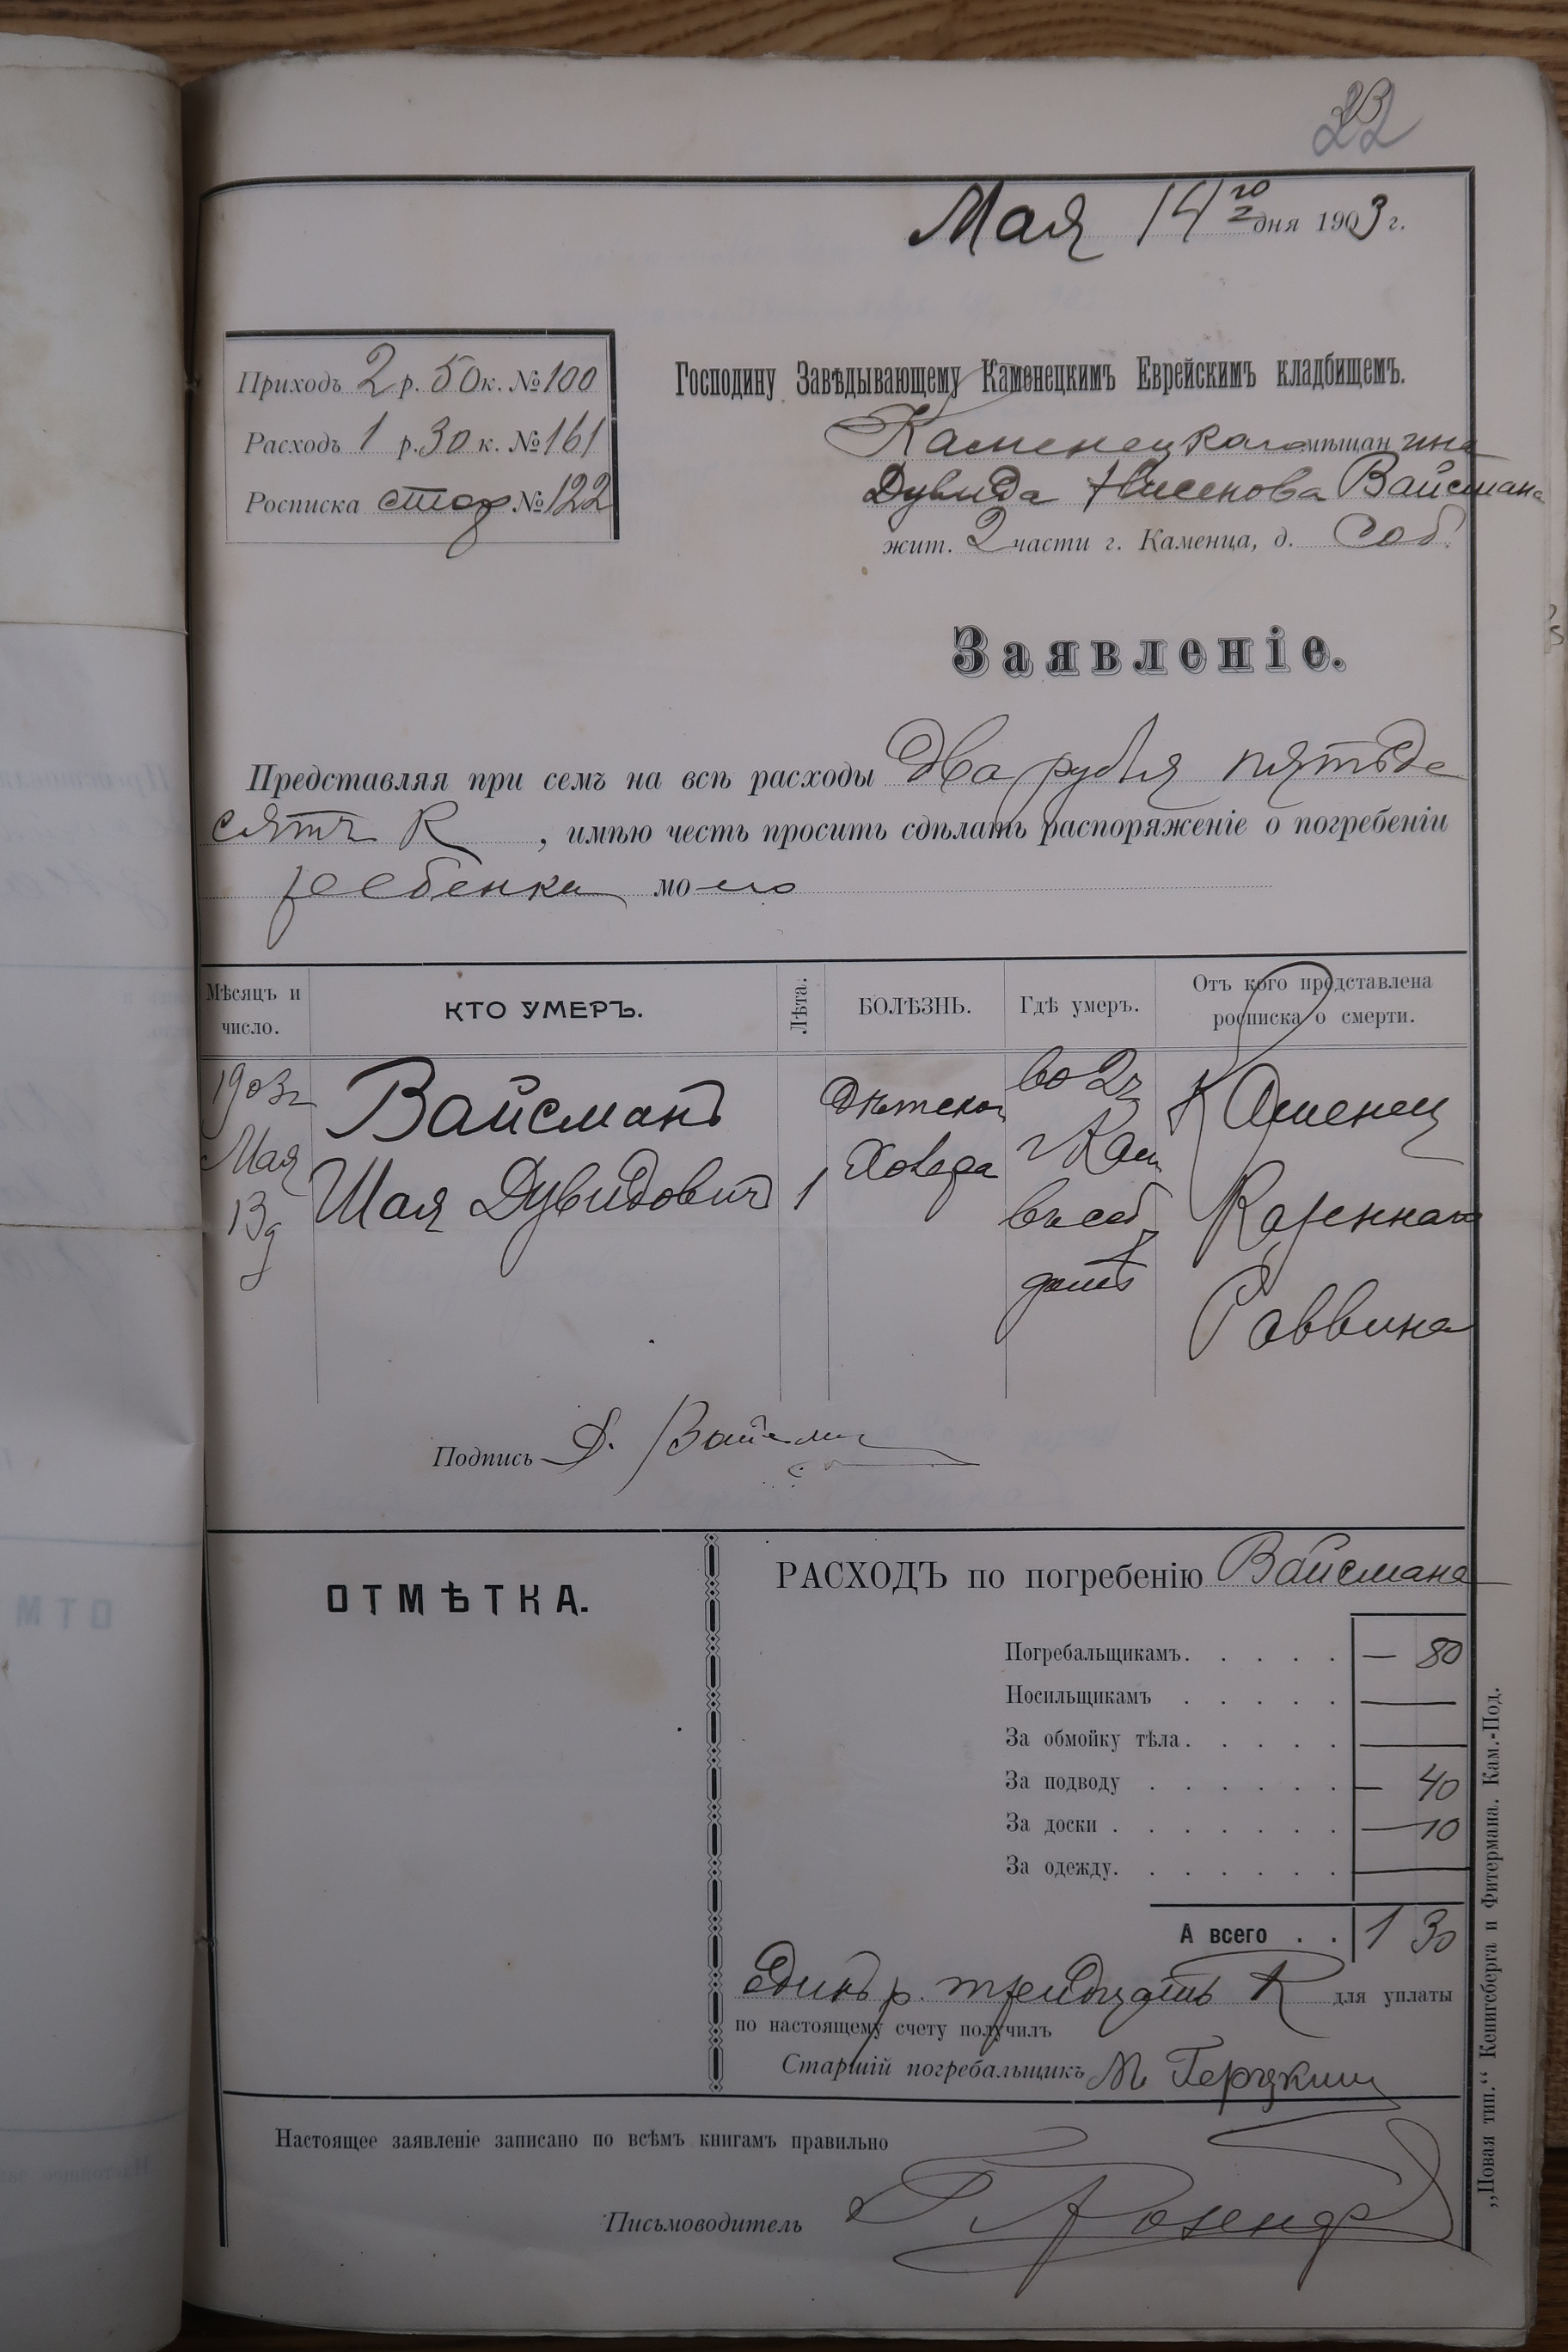 22
Мая 14го дня 1903 г.
Приходъ 2 р. 50 к. № 100
Расходъ 1 р. 30 к. № 161
Росписка стор № 122
Господину Завѣдывающему Каменецкимъ Еврейскимъ кладбищемъ.
Каменецкаго мѣщанина
Дувида Нисенова Вайсмана
жит. 2 части г. Каменца, д. Соб.
Заявленіе.
Представляя при семъ на всѣ расходы два рубля пятьде
сятъ к , имѣю честь просить сдѣлать распоряженіе о погребеніи
ребенка моего
Мѣсяцъ и число.
КТО УМЕРЪ.
Лѣта.
БОЛѢЗНЬ.
Гдѣ умеръ.
Отъ кого представлена росписка о смерти.
1903 г
Мая
13 д
Вайсманъ
Шая Дувидовичъ
1
Дѣтской
во 2 ч
г Кам
въ соб
домѣ
Каменец
Казеннаго
Раввина
Подпись Д. Вайсман
ОТМѢТКА.
РАСХОДЪ по погребенію Вайсмана
Погребальщикамъ. . . . . — 80
Носильщикамъ . . . . . —
За обмойку тѣла. . . . . —
За подводу . . . . . . — 40
За доски . . . . . . . — 10
За одежду. . . . . . . —
А всего . . 1 30
Одинъ р. тридцать к для уплаты
по настоящему счету получилъ
Старшій погребальщикъ М
Настоящее заявленіе записано по всѣмъ книгамъ правильно
Письмоводитель
„Новая тип.“ Кенигсберга и Фитермана. Кам.-Под.